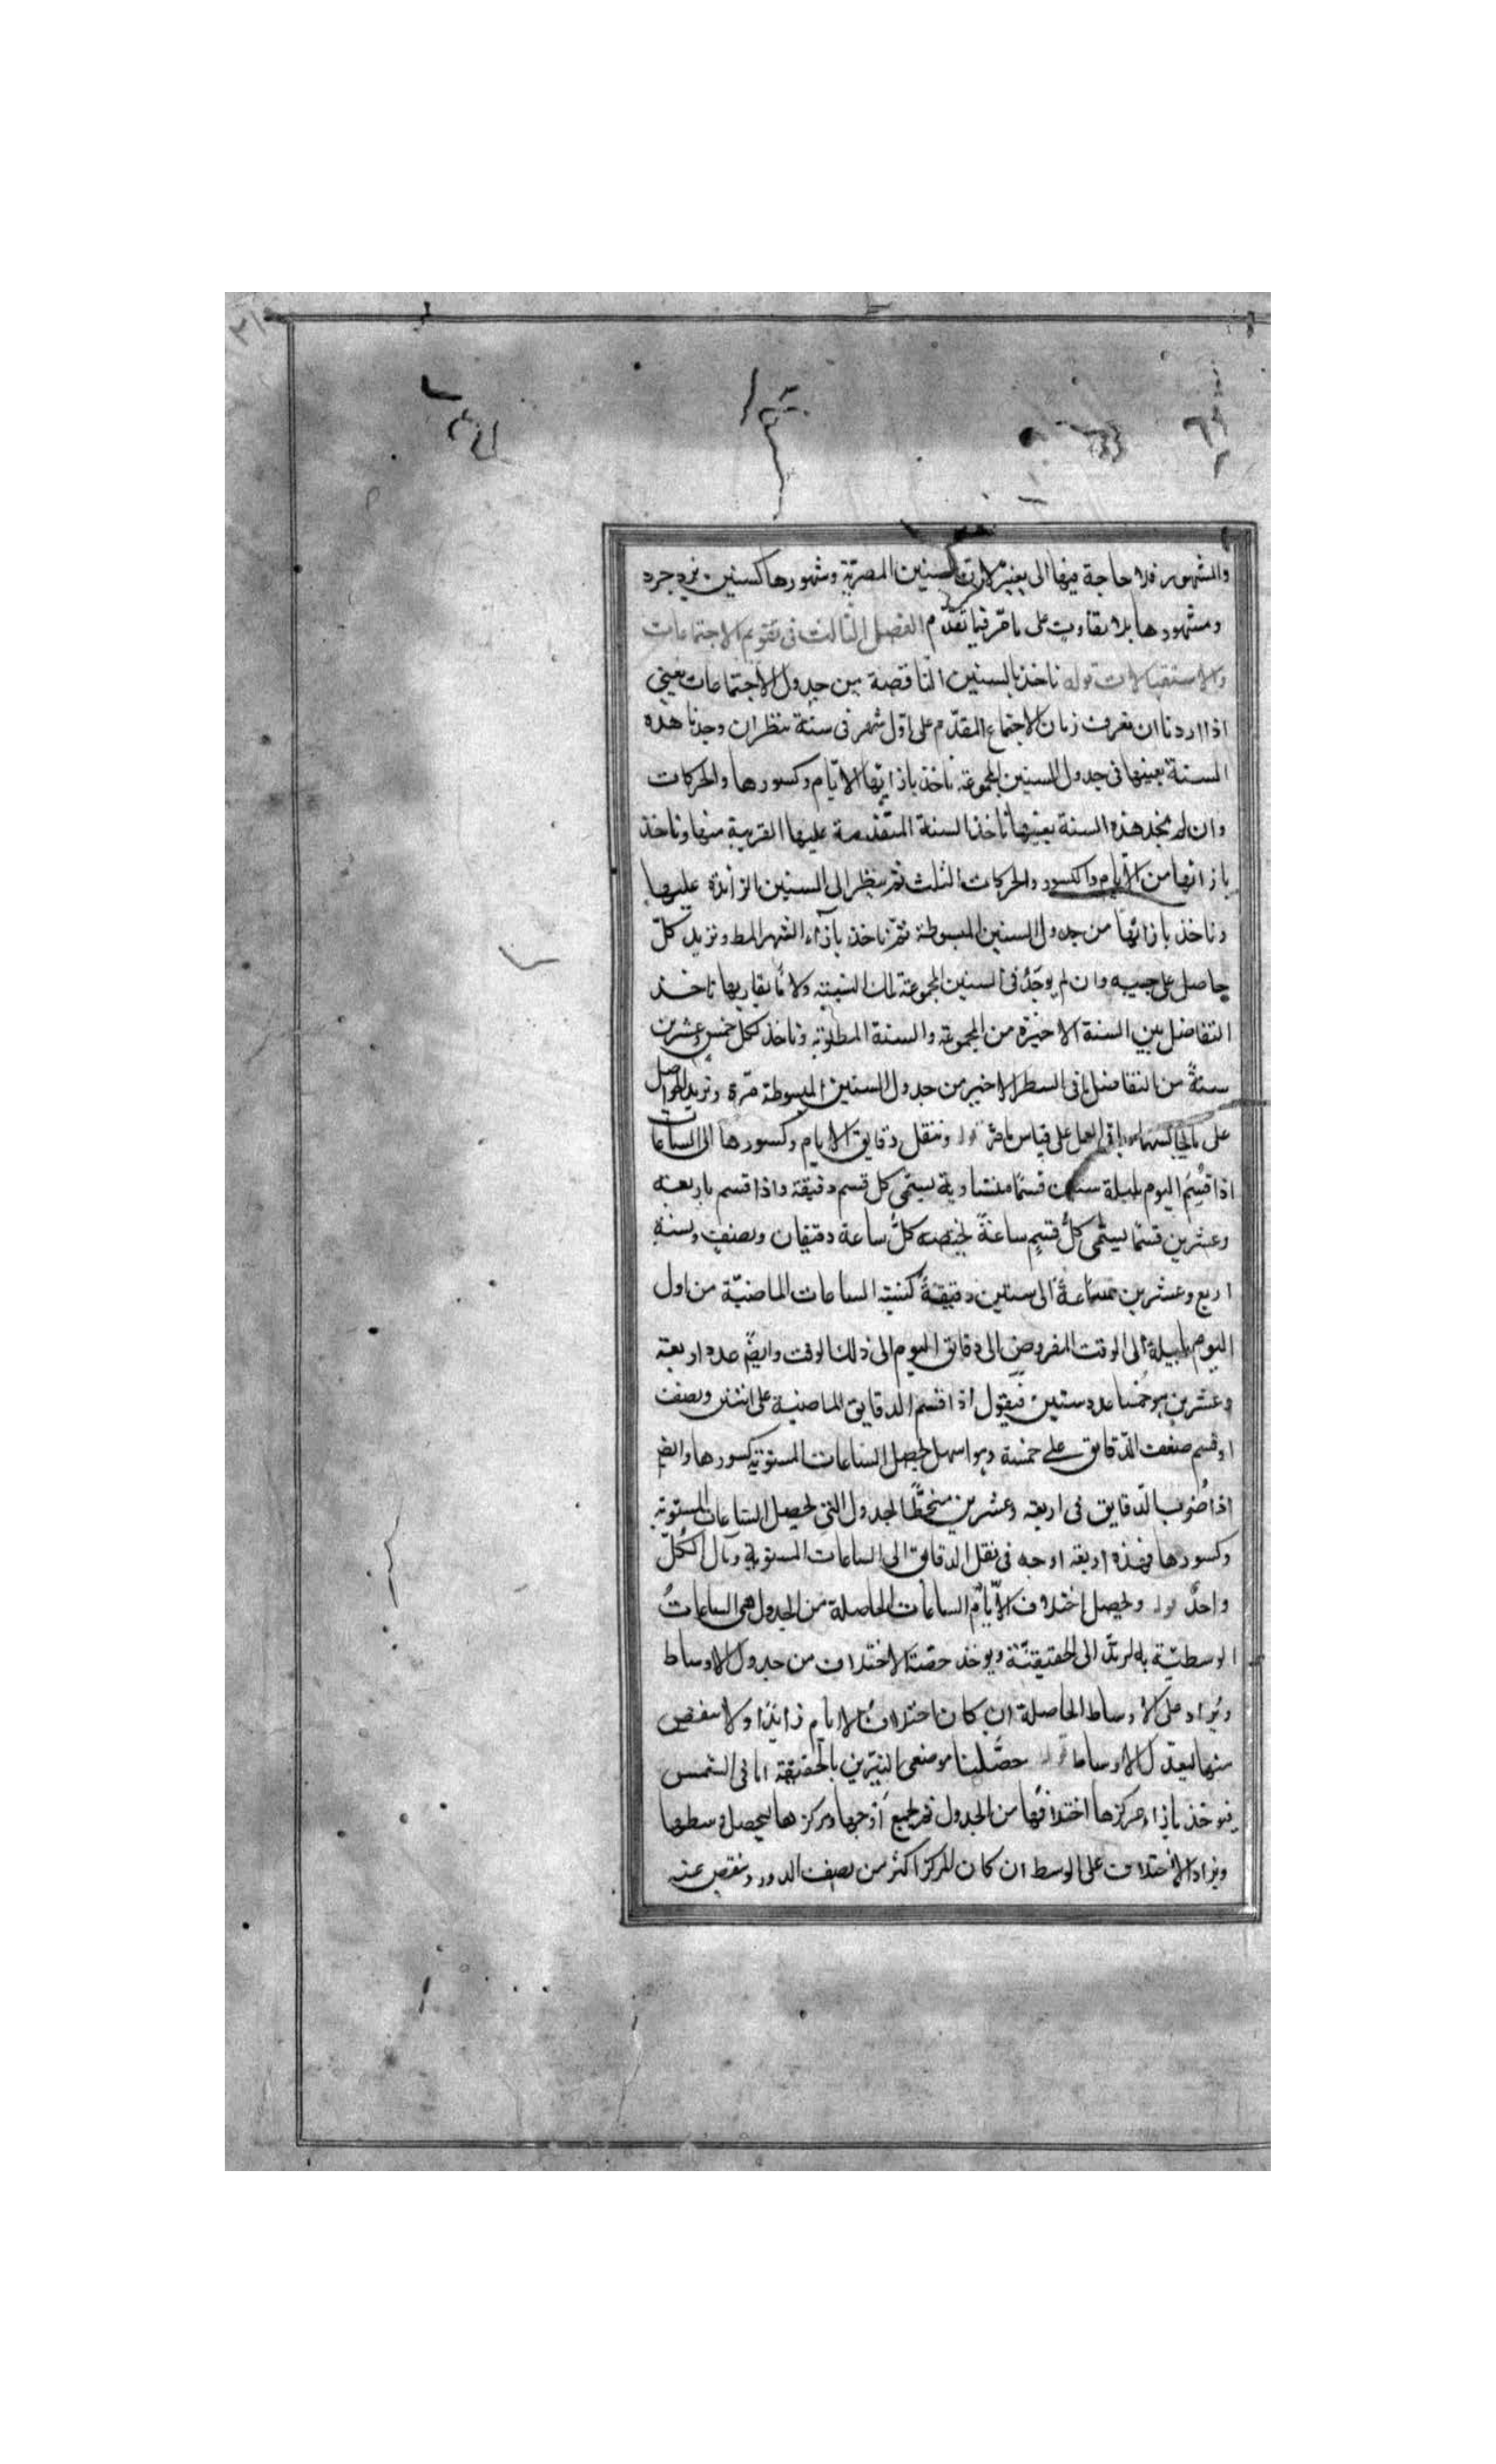 والشهور فلا حاجة فيها الى تغيير لان السنين المصرية وشهورها كسنين يزدجرد
وشهورها بلا تفاوت على ما مر فيما تقدّم الفصل الثالث فى تقويم الاجتماعات
والاستقبالات قوله ناخذ بالسنين الناقصة من جدول الاجتماعات يعنى
اذا اردنا ان نعرف زمان الاجتماع المقدّم على اوّل شهر فى سنة ننظر ان وجدنا هذه
السنة بعينها فى جدول السنين المجموعة ناخذ بازائها الايّام وكسورها والحركات
وان لم نجد هذه السنة بعينها ناخذ السنة المتقدمة عليها القريبة منها وناخذ
بازائها من الايّام والكسور والحركات الثلث ثم ننظر الى السنين الزائدة عليها
وناخذ بازائها من جدول السنين المبسوطة ثمّ ناخذ بازاء الشهر المط ونزيد كلّ
حاصل على جنبه وان لم يوجَدُ فى السنين المجموعة تلك السنة ولا ما يقاربها ناخذ
التفاضل بين السنة الاخيرة من المجموعة والسنة المطلوبة وناخذ لكل خمس وعشرين
سنةً من التفاضل ما فى السطر الاخير من جدول السنين المبسوطة مرة ونزيد الحواصل
على ما يجانسها وباقى العمل على قياس ما مرّ قوله وننقل دقايق الايام وكسورها الى الساعات
اذا قُسِمَ اليوم بليلة ستين قسمًا متساوية يسمّى كل قسم دقيقة واذا قسم باربعة
وعشرين قسمًا يسمّى كلُّ قسمٍ ساعةً فحصة كلُّ ساعة دقيقتان ونصف ونسبة
اربع وعشرين ساعةً الى ستين دقيقةً كنسبة الساعات الماضيّة من اول
اليوم بليلة الى الوقت المفروض الى دقايق اليوم الى ذلك الوقت وايضًا عدد اربعة
وعشرين هو خمسا عدد ستين فنقول اذا قسم الدقايق الماضية على اثنين ونصف
او قسم ضعف الدّقايق على خمسة وهو اسهل يحصل الساعات المستوية كسورها وايضًا
اذا ضُرب الدّقايق فى اربعة وعشرين منحطًّا الجدول التى يحصل الساعات المستوية
وكسورها فهذه اربعة اوجه فى نقل الدقايق الى الساعات المستوية ومآل الكُلّ
واحدٌ قوله ويحصل اختلاف الايّام الساعات الحاصلة من الجدول هى الساعاتُ
الوسطيّة به لردّ الى الحقيقيّة ويوخذ حصّة الاختلاف من جدول الاوساط
ويُزاد على الاوساط الحاصلة ان كان اختلافُ الايام زايدًا والا ينقص
منها ليعدل الاوساط قوله حصّلنا موضعى النيّرين بالحقيقة اما فى الشمس
فيوخذ بازاء مركزها اختلافُها من الجدول ثم يجمع اَوجها ومركزها ليحصل وسطها
ويزاد الاختلاف على الوسط ان كان المركز اكثر من نصف الدور وينقص عنه